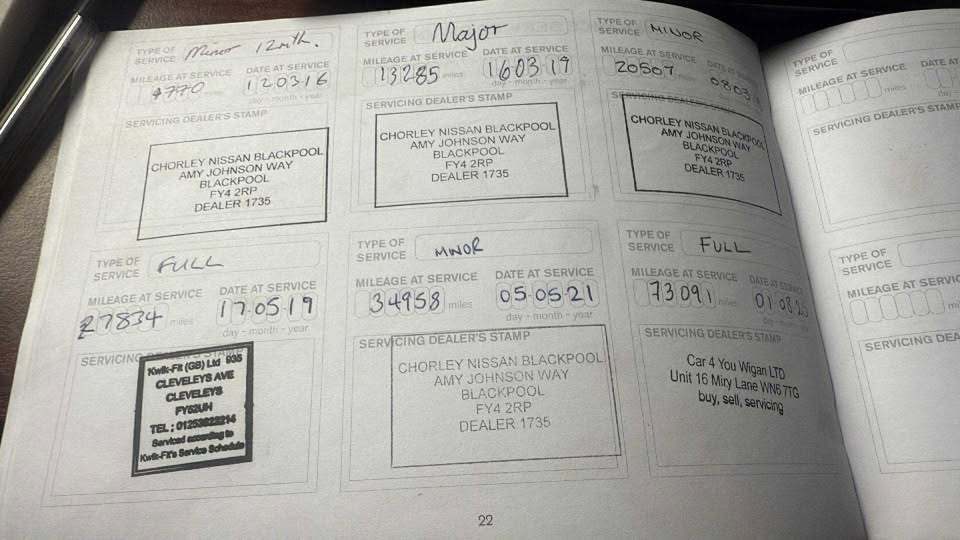 TYPE OF SERVICE Minor 12mth.
MILEAGE AT SERVICE DATE AT SERVICE
4770 miles 12 03 16
day - month - year
SERVICING DEALER'S STAMP
CHORLEY NISSAN BLACKPOOL
AMY JOHNSON WAY
BLACKPOOL
FY4 2RP
DEALER 1735
TYPE OF SERVICE Major
MILEAGE AT SERVICE DATE AT SERVICE
13285 miles 16 03 17
day - month - year
SERVICING DEALER'S STAMP
CHORLEY NISSAN BLACKPOOL
AMY JOHNSON WAY
BLACKPOOL
FY4 2RP
DEALER 1735
TYPE OF SERVICE MINOR
MILEAGE AT SERVICE DATE AT SERVICE
20507 miles 08 03
SERVICING DEALER'S STAMP
CHORLEY NISSAN BLACKPOOL
AMY JOHNSON WAY
BLACKPOOL
FY4 2RP
DEALER 1735
TYPE OF SERVICE
MILEAGE AT SERVICE
miles
day
SERVICING DEALER'S STAMP
TYPE OF SERVICE FULL
MILEAGE AT SERVICE DATE AT SERVICE
27834 miles 17.05.19
day - month - year
SERVICING DEALER'S STAMP
Kwik-Fit (GB) Ltd 935
CLEVELEYS AVE
CLEVELEYS
TEL ;
Serviced according to
Kwik-Fit's Service Schedule
TYPE OF SERVICE MINOR
MILEAGE AT SERVICE DATE AT SERVICE
34958 miles 05.05.21
day - month - year
SERVICING DEALER'S STAMP
CHORLEY NISSAN BLACKPOOL
AMY JOHNSON WAY
BLACKPOOL
FY4 2RP
DEALER 1735
TYPE OF SERVICE FULL
MILEAGE AT SERVICE DATE AT SERVICE
73091 miles 01.08
day - month - year
SERVICING DEALER'S STAMP
Car 4 You Wigan LTD
Unit 16 Miry Lane WN6 7TG
buy, sell, servicing
TYPE OF SERVICE
MILEAGE AT SERVICE
miles
SERVICING
22